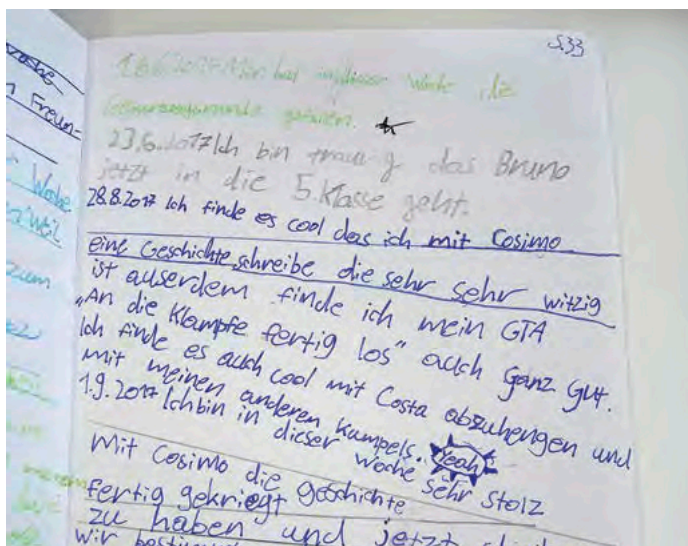 S.33
16.6.2017 Mir hat in dieser Woche die
gefallen.
23.6.2017 Ich bin traurig das Bruno
jetzt in die 5. Klasse geht.
28.8.2017 Ich finde es cool das ich mit Cosimo
eine Geschichte schreibe die sehr sehr witzig
ist auserdem finde ich mein GTA
„An die Klampfe fertig los" auch ganz gut.
Ich finde es auch cool mit Costa abzuhengen und
mit meinen anderen Kumpels. Yeah
1.9.2017 Ich bin in dieser Woche sehr stolz
mit Cosimo die geschichte
fertig gekriegt
zu haben und jetzt
wir
oche
Freun-
Woche
weil
zum